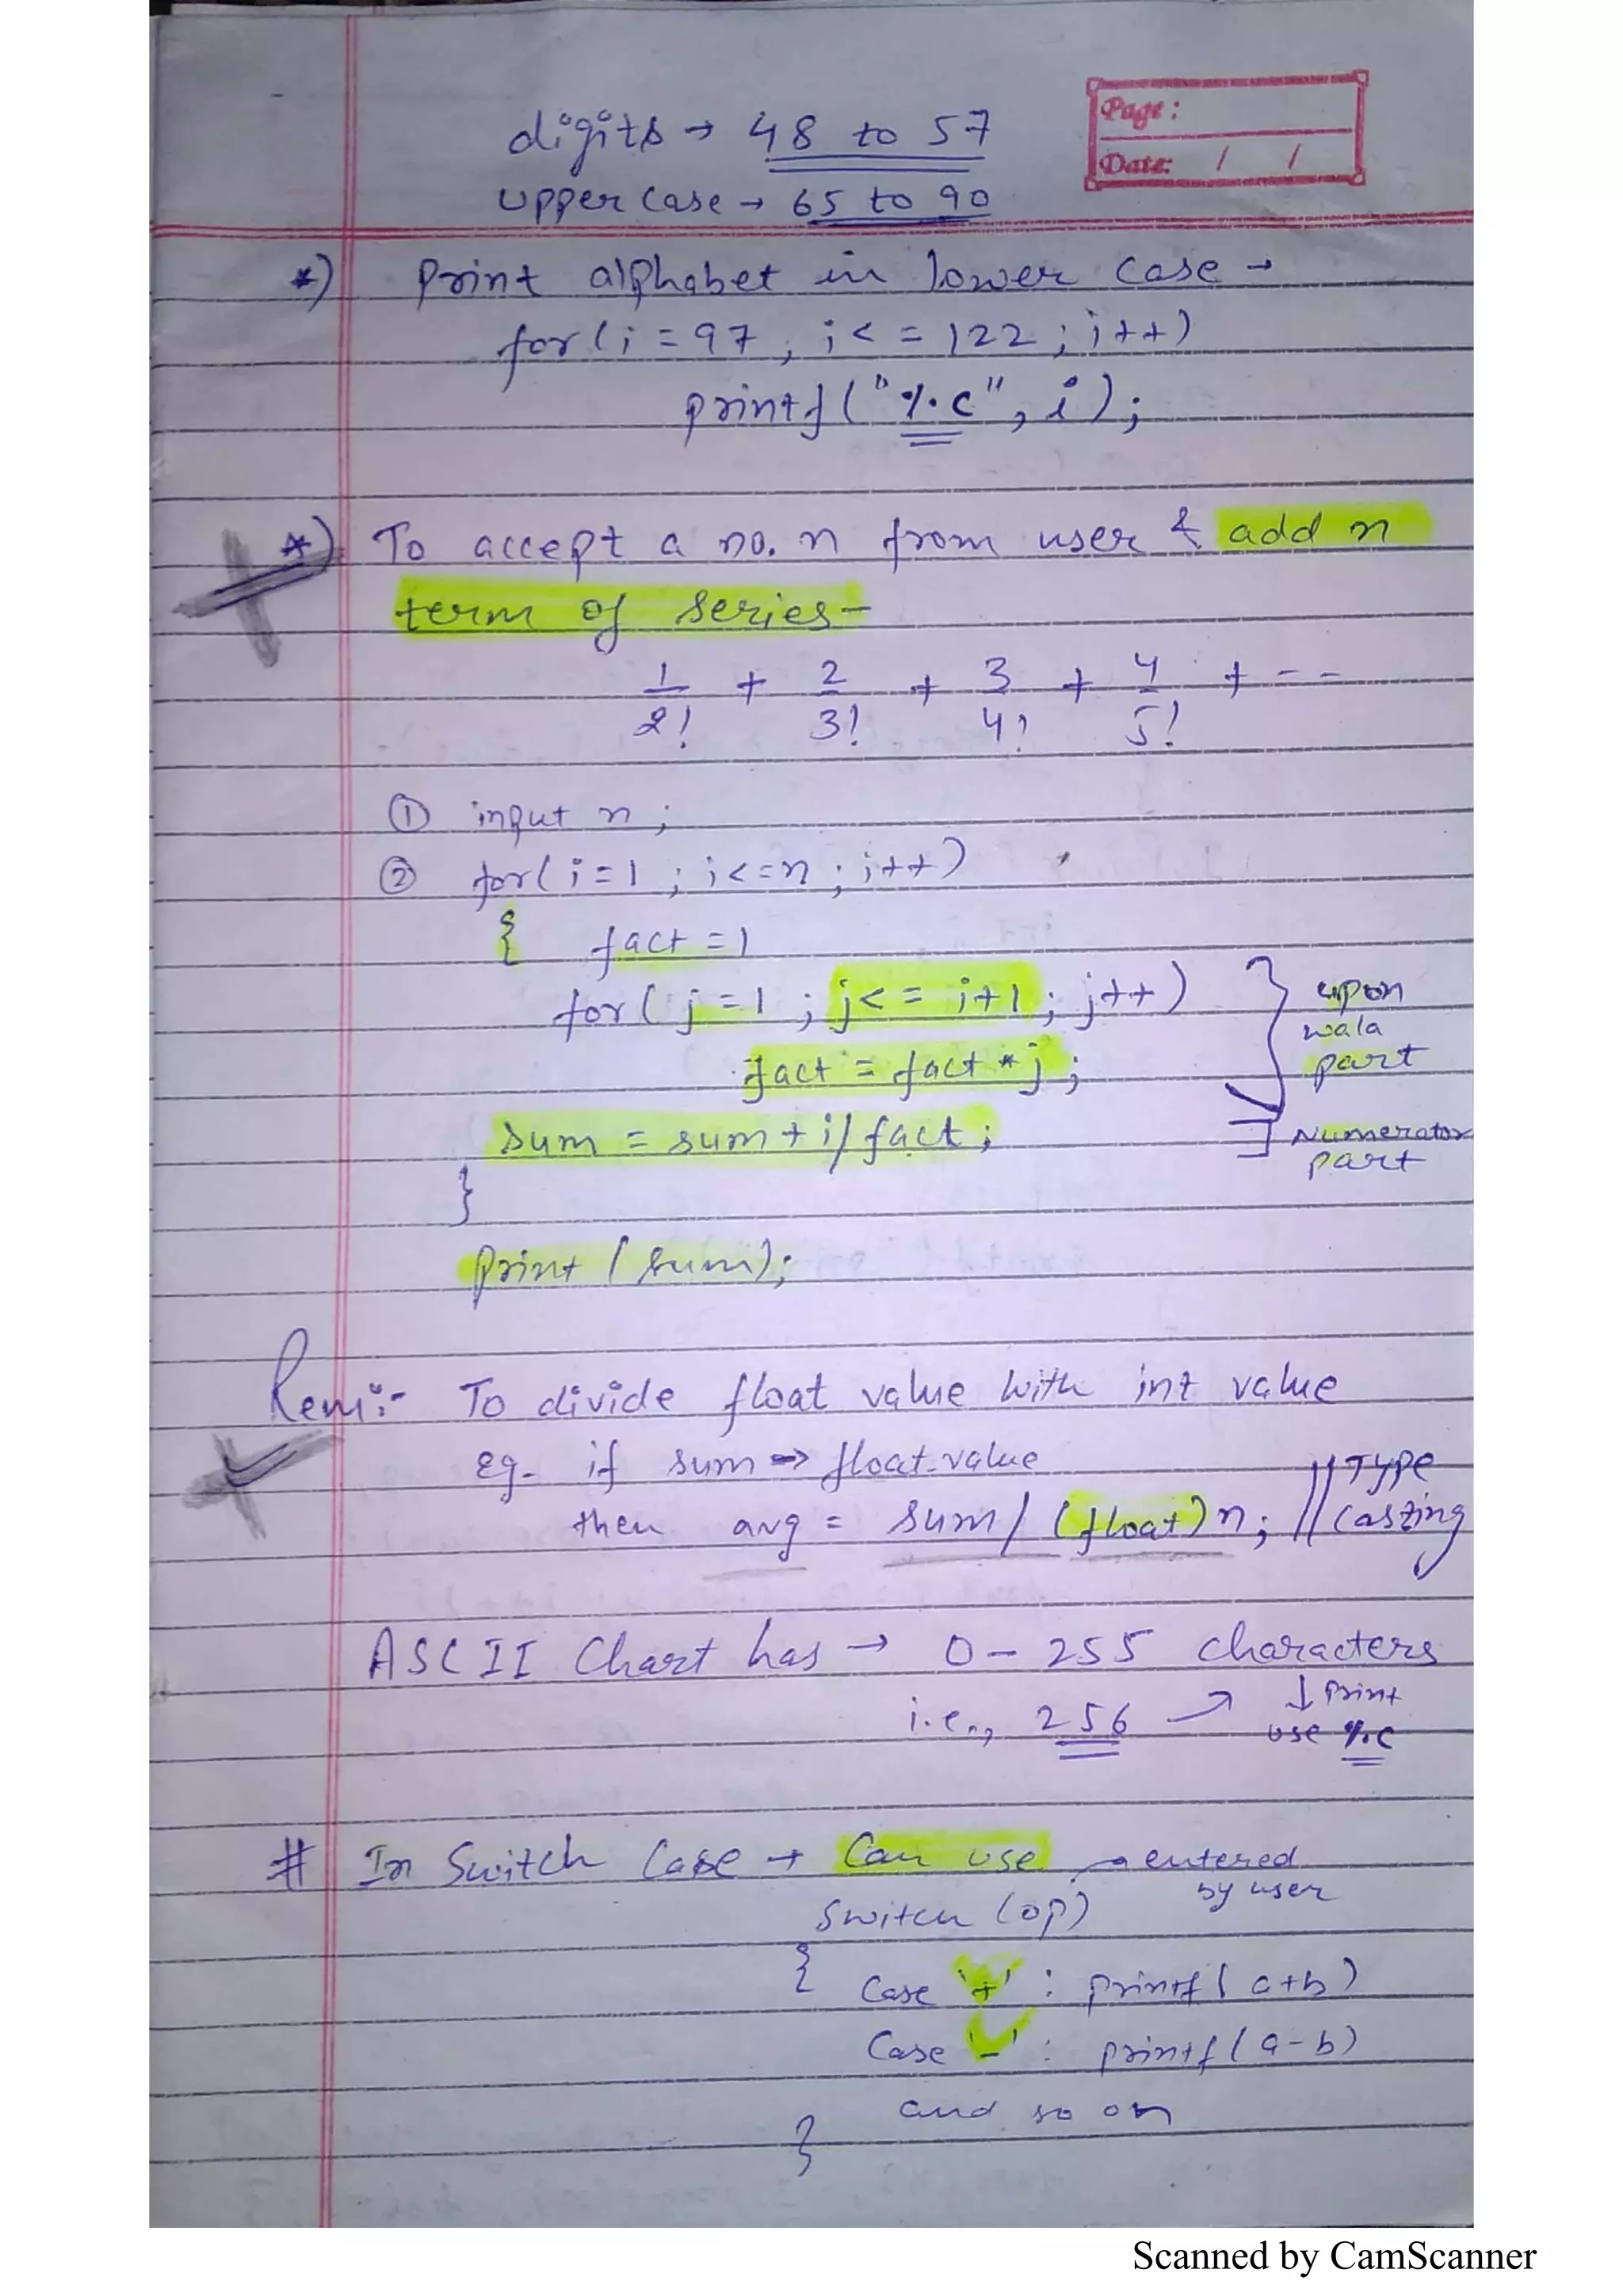 digits → 48 to 57
upper case → 65 to 90
Page:
Date: / /
*) Print alphabet in lower case →
for(i=97, i<=122; i++)
printf("%c", i);
*) To accept a no. n from user & add n
term of series-
1/2! + 2/3! + 3/4! + 4/5! + --
① input n;
② for(i=1; i<=n; i++)
{ fact=1
for(j=1; j<=i+1; j++)
fact = fact*j;
upon
wala
part
sum = sum+i/fact;
Numerator
part
}
print(sum);
Rem:- To divide float value with int value
eg- if sum => float value
then avg = sum/(float)n; // Type
casting
ASCII Chart has → 0-255 characters
i.e., 256 → ↓ print
use %c
# In Switch Case → Can use → entered
by user
Switch (op)
{ Case '+' : printf(a+b)
Case '-' : printf(a-b)
and so on
}
Scanned by CamScanner